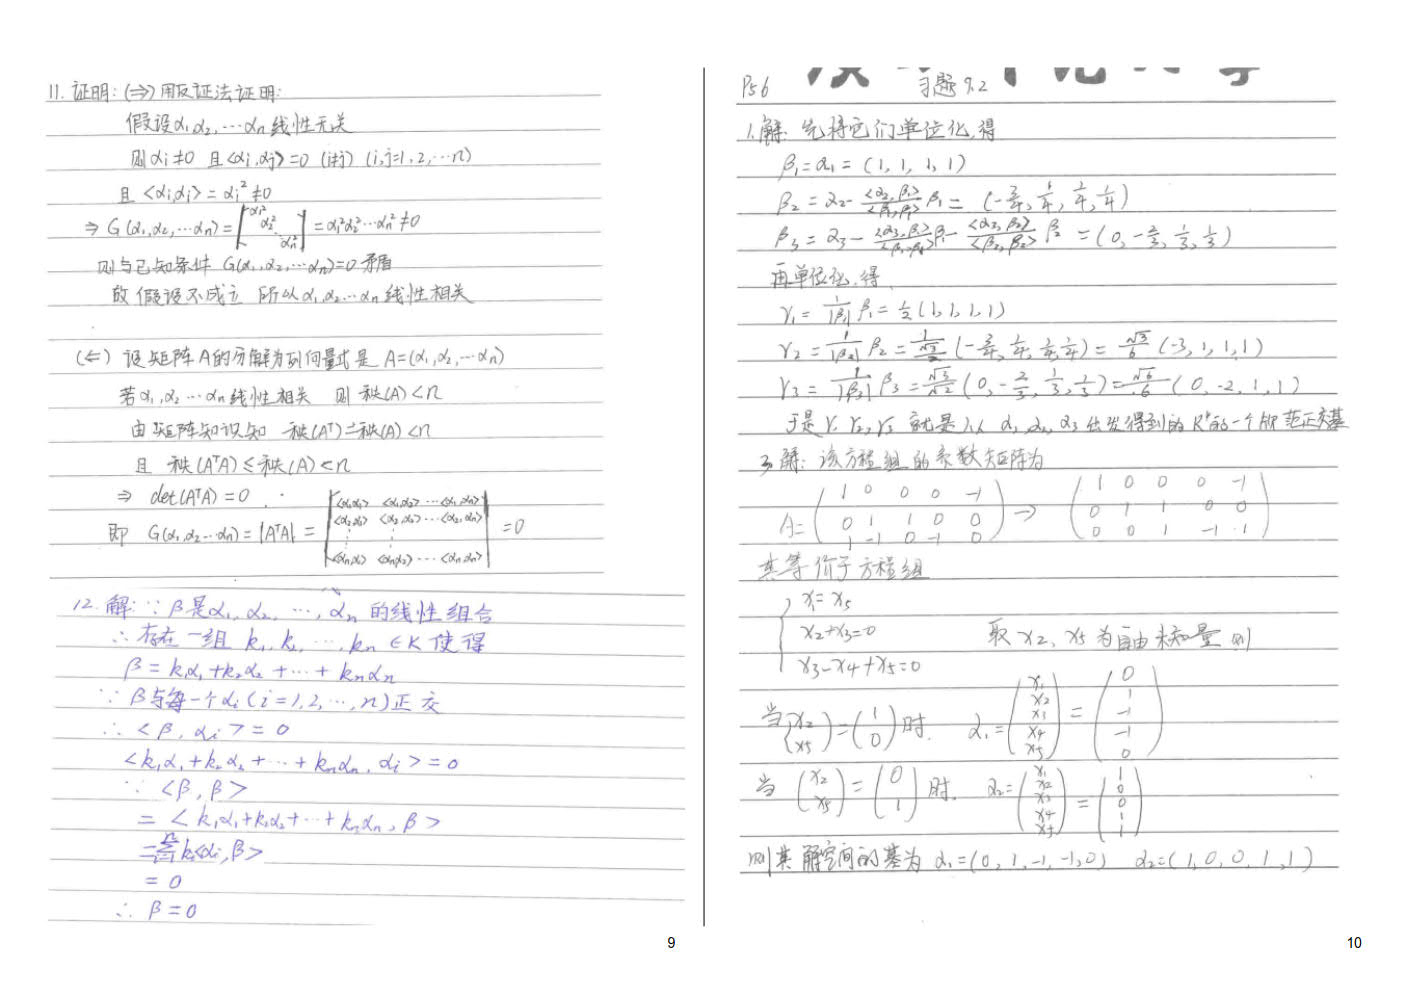 11. 证明: (⇒) 用反证法证明:
假设α₁,α₂,…αn 线性无关
则 αi≠0 且<αi,αj>=0 (i≠j) (i,j=1,2,…n)
且 <αi,αi> = αi²≠0
⇒ G(α₁,α₂,…αn) = | α₁² α₂² ⋱ αn² | = α₁²α₂²…αn²≠0
则与已知条件 G(α₁,α₂,…αn)=0 矛盾
故 假设不成立 所以 α₁,α₂…αn 线性相关
(⇐) 设矩阵A的分解为列向量式是 A=(α₁,α₂,…αn)
若α₁,α₂…αn线性相关 则 秩(A)<n
由矩阵知识知 秩(Aᵀ)=秩(A)<n
且 秩(AᵀA)≤秩(A)<n
⇒ det(AᵀA)=0
即 G(α₁,α₂…αn)=|AᵀA| = | <α₁,α₁> <α₁,α₂> … <α₁,αn>
<α₂,α₁> <α₂,α₂> … <α₂,αn>
⋮ ⋮
<αn,α₁> <αn,α₂> … <αn,αn> | =0
12. 解: ∵ β是α₁,α₂,…,αn 的线性组合
∴ 存在一组 k₁,k₂,…,kn ∈K 使得
β = k₁α₁+k₂α₂+…+knαn
∵ β与每一个αi(i=1,2,…,n)正交
∴ <β,αi> = 0
<k₁α₁+k₂α₂+…+knαn,αi>=0
∵ <β,β>
= <k₁α₁+k₂α₂+…+knαn,β>
=Σki<αi,β>
= 0
∴ β=0
9
P56 习题9.2
1.解: 先将它们单位化,得
β₁=α₁= (1,1,1,1)
β₂=α₂-<α₂,β₁>/<β₁,β₁> β₁= (-3/4,1/4,1/4,1/4)
β₃=α₃-<α₃,β₁>/<β₁,β₁>β₁-<α₃,β₂>/<β₂,β₂>β₂ =(0,-2/3,1/3,1/3)
再单位化,得
γ₁=1/|β₁| β₁=1/2(1,1,1,1)
γ₂=1/|β₂| β₂= (-3/4,1/4,1/4,1/4)=√3/6(-3,1,1,1)
γ₃=1/|β₃| β₃=√3/√2(0,-2/3,1/3,1/3)=√6/6(0,-2,1,1)
于是 γ₁ γ₂,γ₃ 就是从 α₁,α₂,α₃ 出发得到的R⁴的一个标准正交基
3.解: 该方程组的系数矩阵为
A=( 1 0 0 0 -1
0 1 1 0 0
1 -1 0 -1 0 ) → ( 1 0 0 0 -1
0 1 1 0 0
0 0 1 -1 1 )
其等价于方程组
x₁=x₅
x₂+x₃=0 取x₂,x₅为自由未知量 则
x₃-x₄+x₅=0
当(x₂ x₅)=(1 0)时. α₁=(x₁ x₂ x₃ x₄ x₅)=(0 1 -1 -1 0)
当 (x₂ x₅)=(0 1)时. α₂=(x₁ x₂ x₃ x₄ x₅)=(1 0 0 1 1)
则其解空间的基为 α₁=(0,1,-1,-1,0) α₂=(1,0,0,1,1)
10